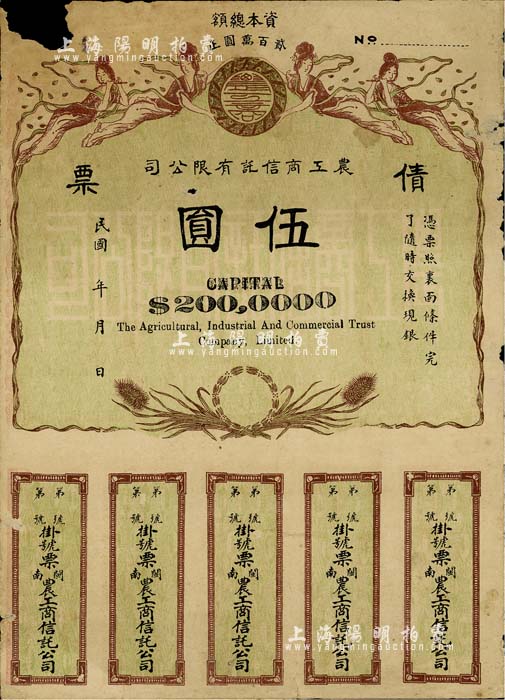 資本總額
貳百萬圓正
No
農工商信託有限公司
債票
伍圓
憑票照裏面條件完
了隨時交換現銀
民國 年 月 日
CAPITAL
$200,0000
The Agricultural, Industrial And Commercial Trust
Company, Limited
第 號
第 號
掛號票
閩南
農工商信託公司
第 號
第 號
掛號票
閩南
農工商信託公司
第 號
第 號
掛號票
閩南
農工商信託公司
第 號
第 號
掛號票
閩南
農工商信託公司
第 號
第 號
掛號票
閩南
農工商信託公司
上海陽明拍賣
www.yangmingauction.com
上海陽明拍賣
www.yangmingauction.com
上海陽明拍賣
www.yangmingauction.com
上海陽明拍賣
www.yangmingauction.com